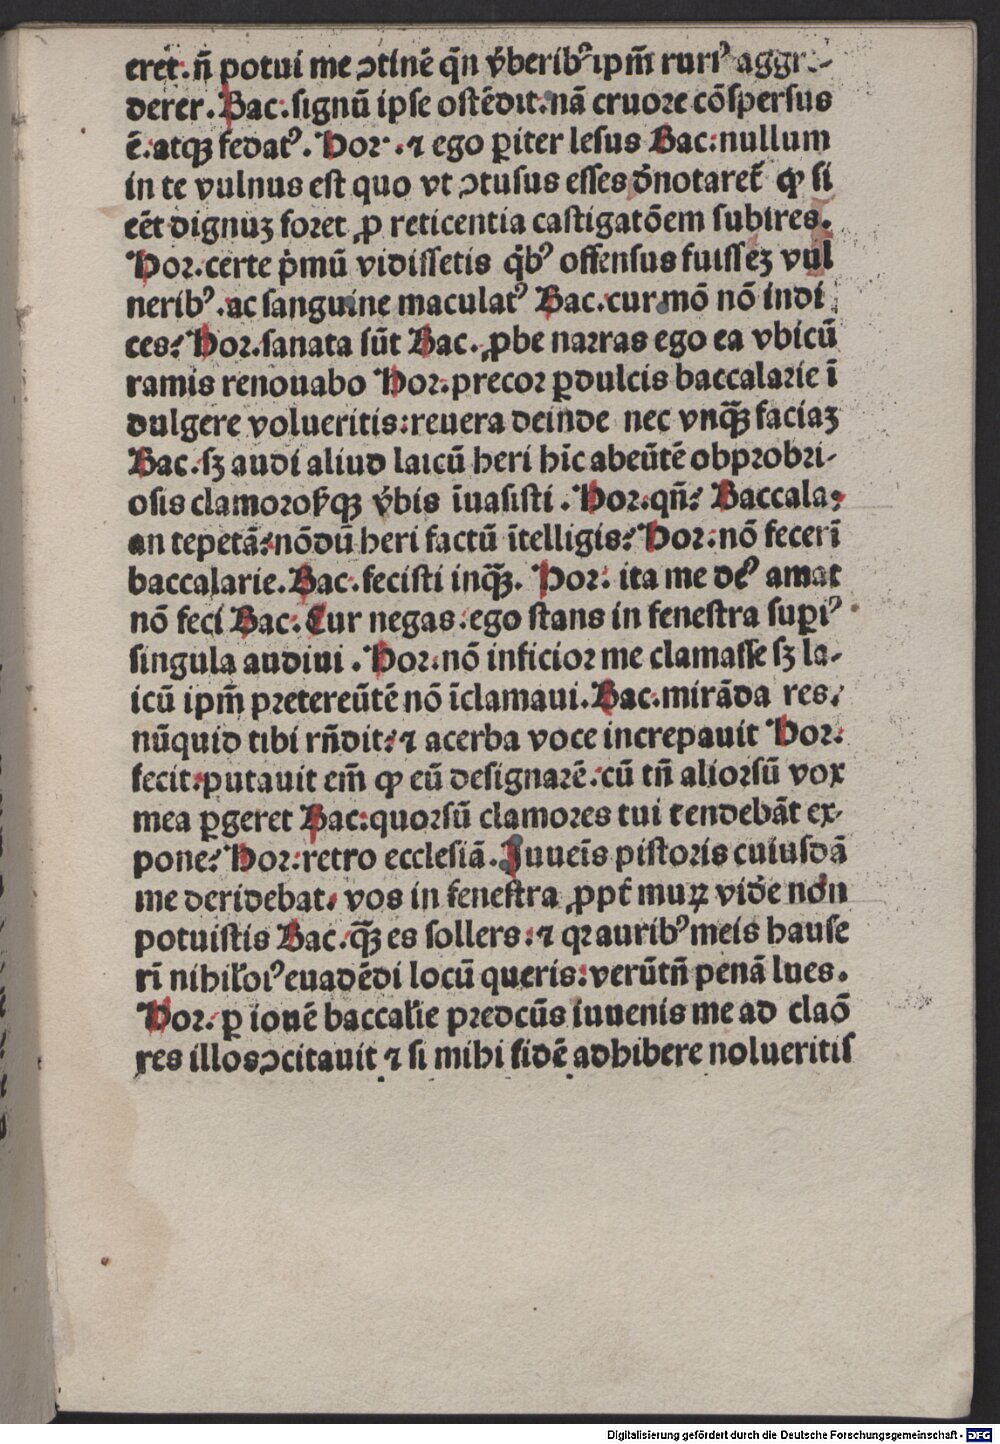 eret. n̄ potui me ↄtinē q̄n v̓berib⁹ ip̄m rurſ⁹
derer. Bac. signū ipse ostēdit. nā cruore cōspersus
ē. atqꝫ fedat⁹. Hor. ⁊ ego ꝑiter lesus Bac: nullum
in te vulnus est quo vt ↄtusus esses d̓notaret̄ ꝙ si
eēt dignuꝫ foret ꝓ reticentia castigatōem subires.
Hor. certe p̓mū vidissetis q̓b⁹ offensus fuisseꝫ vul
nerib⁹. ac sanguine maculat⁹ Bac. cur mō nō indi
ces? Hor. sanata sūt Bac. ꝓbe narras ego ea vbicū
ramis renouabo Hor. precor ꝑdulcis baccalarie ī
dulgere volueritis: reuera deinde nec vnqꝫ̄ faciaꝫ
Bac. sꝫ audi aliud laicū heri hīc abeūtē obprobri-
osis clamorosꝫqꝫ v̓bis īuasisti. Hor. qn̄? Baccala:
an tepetā? nōdū heri factū ītelligis? Hor. nō fecerī
baccalarie. Bac. fecisti inqꝫ̄. Hor: ita me de⁹ amat
nō feci Bac. Cur negas. ego stans in fenestra supi⁹
singula audiui. Hor. nō inficior me clamasse sꝫ la-
icū ip̄m pretereūtē nō īclamaui. Bac. mirāda res.
nūquid tibi rn̄dit? ⁊ acerba voce increpauit Hor.
fecit. putauit em̄ ꝙ eū designarē. cū tn̄ aliorsū vox
mea ꝑgeret Bac: quorsū clamores tui tendebāt ex-
pone? Hor: retro ecclesiā. Juueīs pistoris cuiusdā
me deridebat. vos in fenestra ꝓpt̓ muꝝ vid̓e non
potuistis Bac. qꝫ̄ es sollers: ⁊ qꝛ aurib⁹ meis hause
rī nihilo⁹ euadēdi locū queris: verūtn̄ penā lues.
Hor. ꝑ iouē baccalr̓ie predcūs iuuenis me ad claō
res illos ↄcitauit ⁊ si mihi fidē adhibere nolueritis
Digitalisierung gefördert durch die Deutsche Forschungsgemeinschaft - DFG